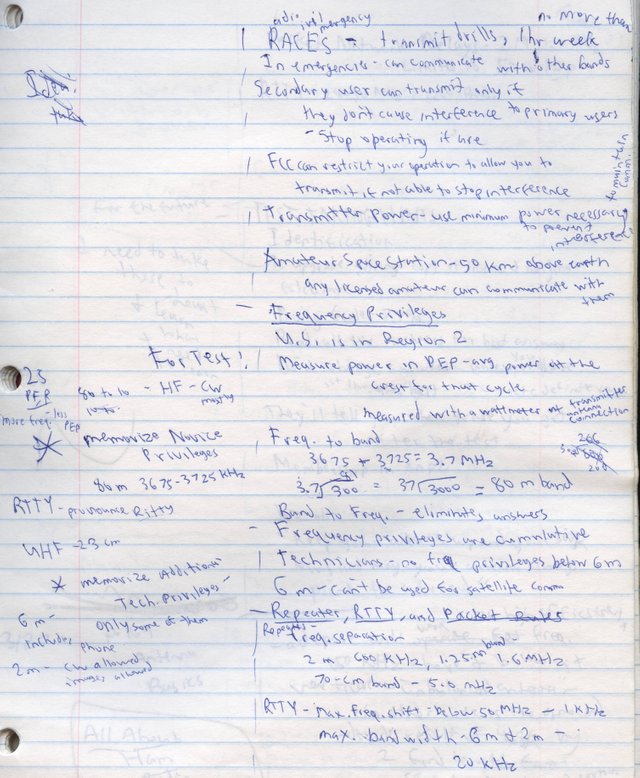 radio civil emergency
no more than
RACES - transmit drills, 1hr week
In emergencies - can communicate with other bands
Secondary user can transmit only if
they don't cause interference to primary users
- Stop operating if are
FCC can restrict your operation to allow you to
transmit if not able to stop interference
to maintain comm.
Transmitter power - use minimum power necessary
to prevent
interference
Amateur Space Station - 50 Km above earth
any licensed amateur can communicate with
them
- Frequency Privileges
U.S. is in Region 2
For Test!
Measure power in PEP - avg power at the
crest for that cycle
measured with a wattmeter at transmitter
antenna
connection
25
PEP
80 to 10 - HF - CW
mostly
more freq. - less
PEP
memorize Novice
Privileges
80m 3675-3725 kHz
Freq. to band
3675 + 3725 = 3.7 MHz
3.7 300 = 37 3000 = 80 m band
RTTY - pronounce Ritty
Band to Freq. - eliminates answers
- Frequency privileges are cumulative
UHF - 23 cm
Technicians - no freq privileges below 6m
* memorize Addition
Tech. Privileges -
only some of them
6 m - can't be used for satellite comm
- Repeater, RTTY, and Packet Rules
6 m -
includes phone
2 m - CW allowed
images allowed
Repeater -
freq. separation
2 m 600 KHz, 1.25 m band 1.6 MHz
70-cm band - 5.0 mHz
RTTY - max. freq. shift - below 50 MHz - 1 KHz
max. bandwidth - 6m & 2m -
20 kHz
All About
Ham